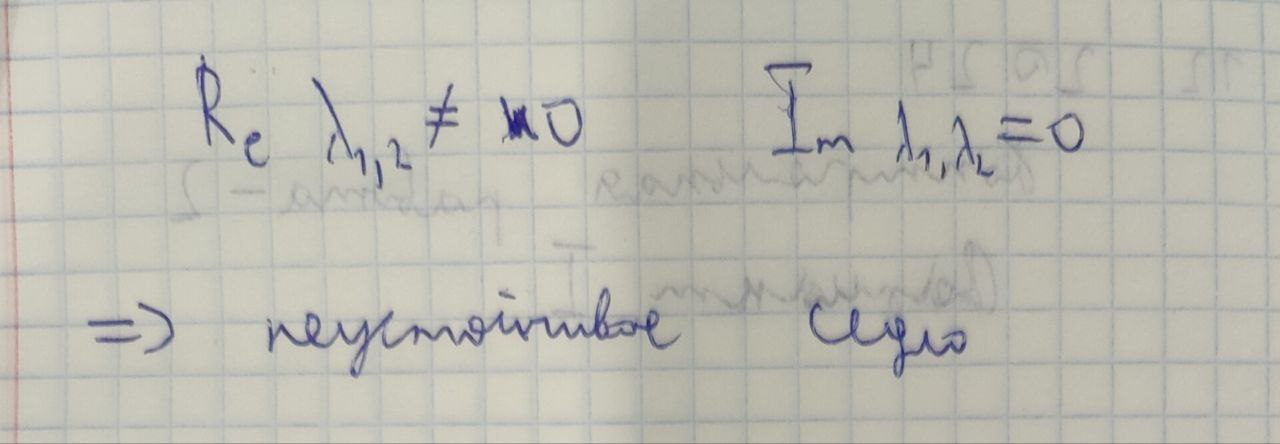 Re λ₁,₂ ≠ 0 Im λ₁, λ₂ = 0
=> неустойчивое седло